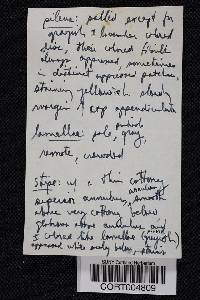 pileus: pallid except for
grayish & lavender colored
disc, these colored fibrils
always appressed, sometimes
in distinct appressed patches,
staining yellowish slowly
margin & cap appendiculate
lamellae: pale, gray,
remote, crowded
stipe: w/ a thin cottony
annulus
superior annulus, smooth
above very cottony below,
glabrous above annulus and
colored like lamellae (grayish)
appressed white scaly below, stains
SUNY Cortland Herbarium
CORT004809